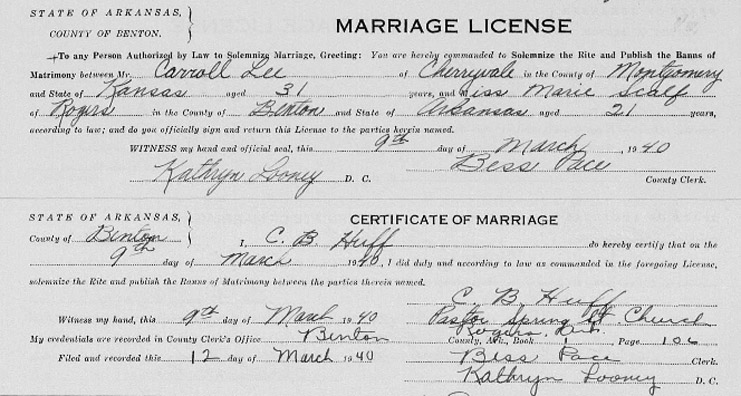 STATE OF ARKANSAS,
COUNTY OF BENTON.
MARRIAGE LICENSE
To any Person Authorized by Law to Solemnize Marriage, Greeting: You are hereby commanded to Solemnize the Rite and Publish the Banns of
Matrimony between Mr. Carroll Lee of Cherryvale in the County of Montgomery
and State of Kansas aged 31 years, and Miss Marie Scalf
of Rogers in the County of Benton and State of Arkansas aged 21 years,
according to law; and do you officially sign and return this License to the parties herein named.
WITNESS my hand and official seal, this 9th day of March, 1940
Kathryn Looney D. C. Bess Pace County Clerk.
STATE OF ARKANSAS,
County of Benton
CERTIFICATE OF MARRIAGE
I, C. B Huff do hereby certify that on the
9th day of March 1940, I did duly and according to law as commanded in the foregoing License,
solemnize the Rite and publish the Banns of Matrimony between the parties therein named.
C. B Huff
Witness my hand, this 9th day of March 1940 Pastor Spring St. Church
Rogers, Ark.
My credentials are recorded in County Clerk's Office Benton County, Ark., Book 1 Page 106
Filed and recorded this 12 day of March 1940 Bess Pace Clerk.
Kathryn Looney D. C.